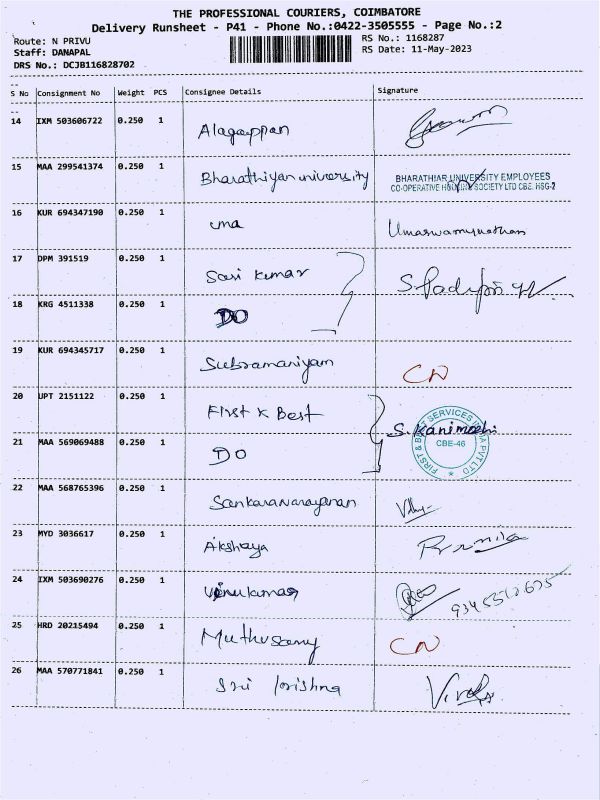 THE PROFESSIONAL COURIERS, COIMBATORE
Delivery Runsheet - P41 - Phone No.:0422-3505555 - Page No.:2
Route: N PRIVU
RS No.: 1168287
Staff: DANAPAL
RS Date: 11-May-2023
DRS No.: DCJB116828702
S No Consignment No Weight PCS Consignee Details Signature
14 IXM 503606722 0.250 1 Alagappan
15 MAA 299541374 0.250 1 Bharathiyan university BHARATHIAR UNIVERSITY EMPLOYEES
CO-OPERATIVE HOUSING SOCIETY LTD CBE. HSG-2
16 KUR 694347190 0.250 1 uma Umaswamynathan
17 DPM 391519 0.250 1 Sasi kumar
18 KRG 4511338 0.250 1 DO
19 KUR 694345717 0.250 1 Subramaniyam CN
20 UPT 2151122 0.250 1 First K Best S. Kanimozhi
FIRST & BEST SERVICES INDIA PVT LTD
CBE-46
21 MAA 569069488 0.250 1 DO
22 MAA 568765396 0.250 1 Sankaranarayanan
23 MYD 3036617 0.250 1 Akshaya
24 IXM 503690276 0.250 1 Venukumar
25 HRD 20215494 0.250 1 Muthusamy CN
26 MAA 570771841 0.250 1 Sri krishna